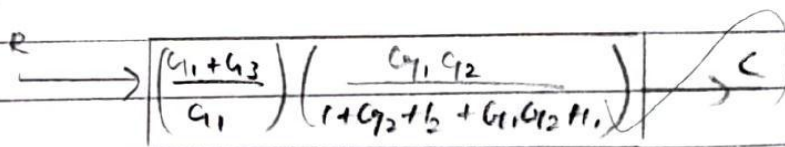 R → ((G1 + G3) / G1) (G1 G2 / (1 + G2 H2 + G1 G2 H1)) → C